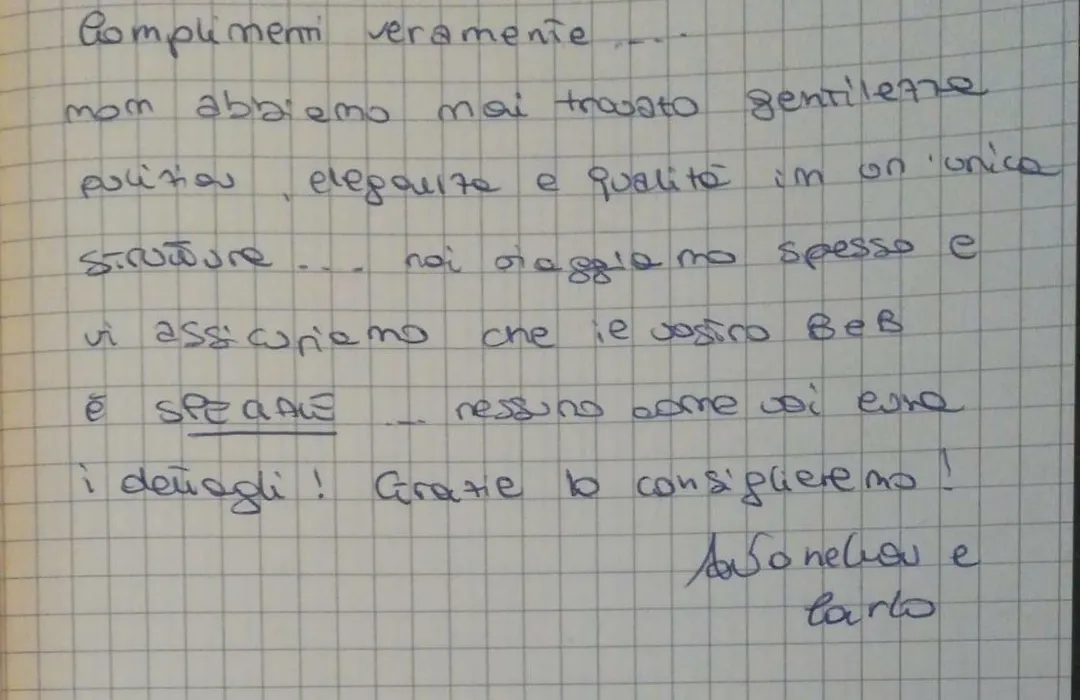 Complimenti veramente ....
non abbiamo mai trovato gentilezza
pulizia, eleganza e qualità in un'unica
struttura .... noi viaggiamo spesso e
vi assicuriamo che il vostro BeB
è SPECIALE ... nessuno come voi cura
i dettagli! Grazie lo consiglieremo!
Antonella e
Carlo